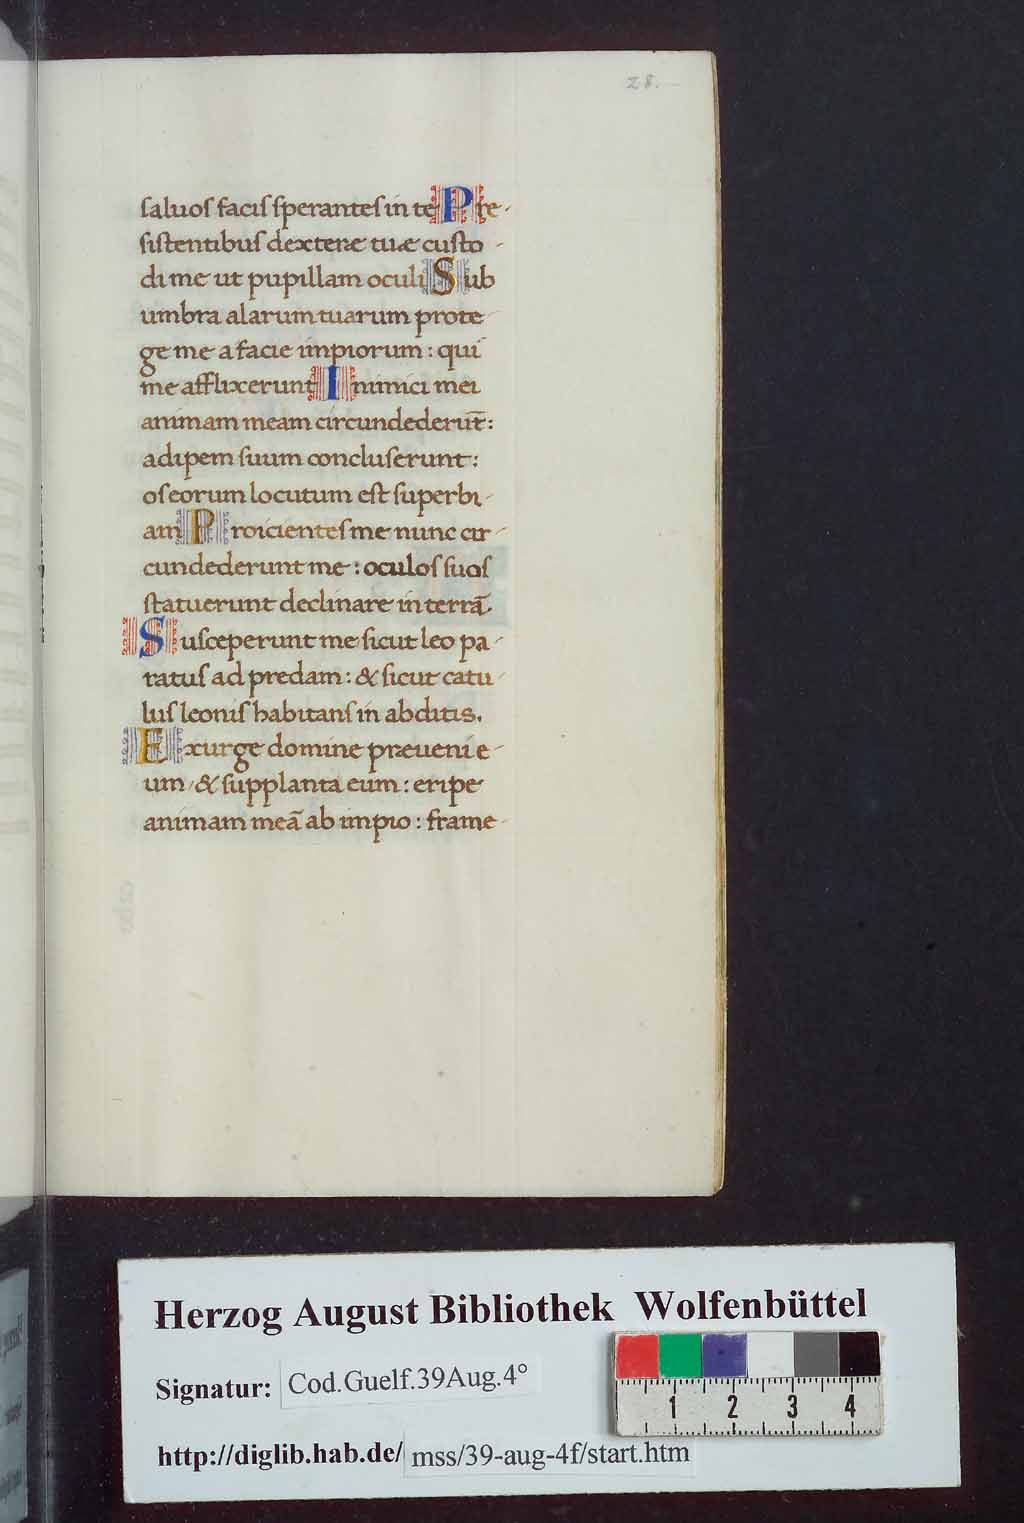 28.
saluos facis sperantes in te Pre-
sistentibus dexteræ tuæ custo-
di me ut pupillam oculi Sub
umbra alarum tuarum prote-
ge me a facie impiorum: qui
me afflixerunt Inimici mei
animam meam circundederūt:
adipem suum concluserunt:
os eorum locutum est superbi-
am Proicientes me nunc cir-
cundederunt me: oculos suos
statuerunt declinare in terrā.
Susceperunt me sicut leo pa-
ratus ad predam: & sicut catu-
lus leonis habitans in abditis.
Exurge domine præueni e-
um & supplanta eum: eripe
animam meā ab impio: frame-
Herzog August Bibliothek Wolfenbüttel
Signatur: Cod.Guelf.39Aug.4°
1 2 3 4
http://diglib.hab.de/ mss/39-aug-4f/start.htm